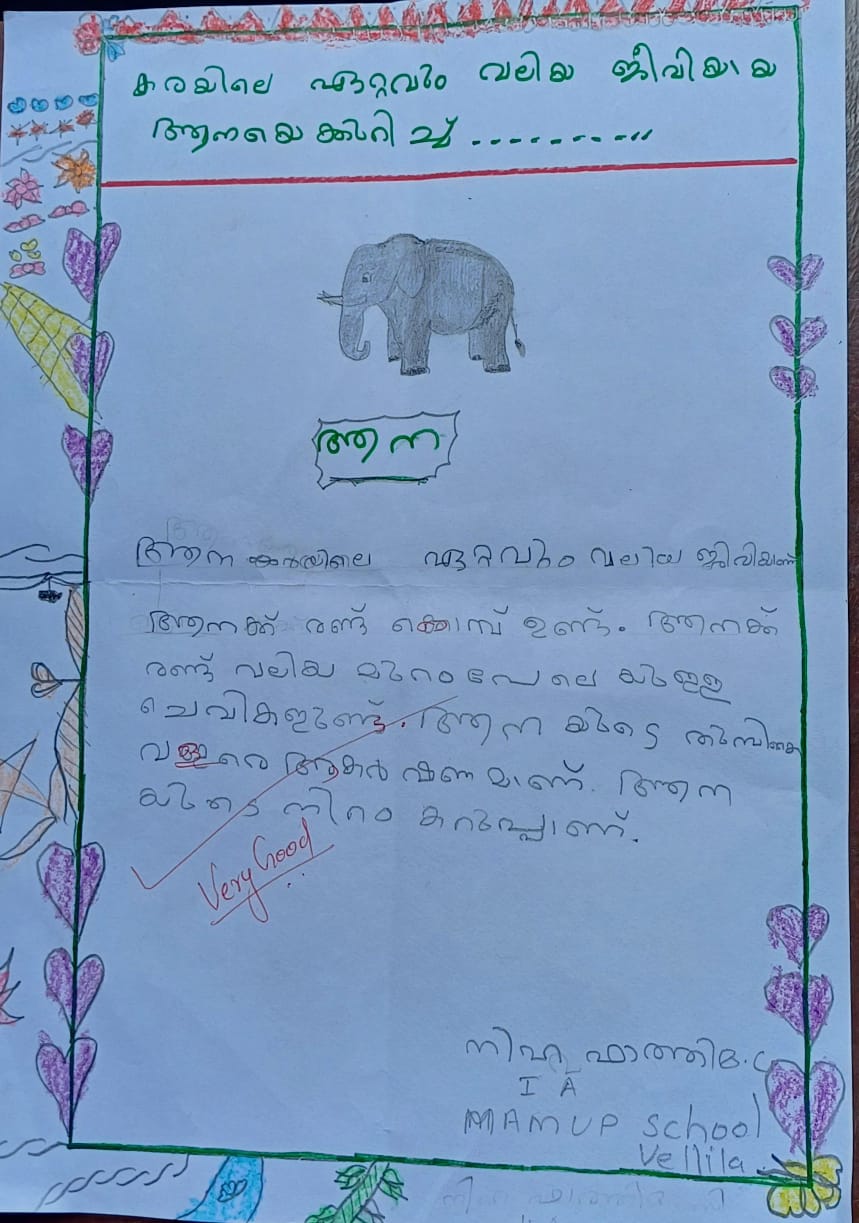 കരയിലെ ഏറ്റവും വലിയ ജീവിയായ
ആനയെക്കുറിച്ച് ..........
ആന
ആന കരയിലെ ഏറ്റവും വലിയ ജീവിയാണ്
ആനക്ക് രണ്ട് കൊമ്പ് ഉണ്ട്. ആനക്ക്
രണ്ട് വലിയ മുറം പോലെ യുള്ള
ചെവികളുണ്ട്. ആന യുടെ തുമ്പികൈ
വളരെ ആകർ ഷണ മാണ്. ആന
യുടെ നിറം കറുപ്പാണ്.
Very Good
നിഹ ഫാത്തിമ.C
I A
MAMUP School
Vellila